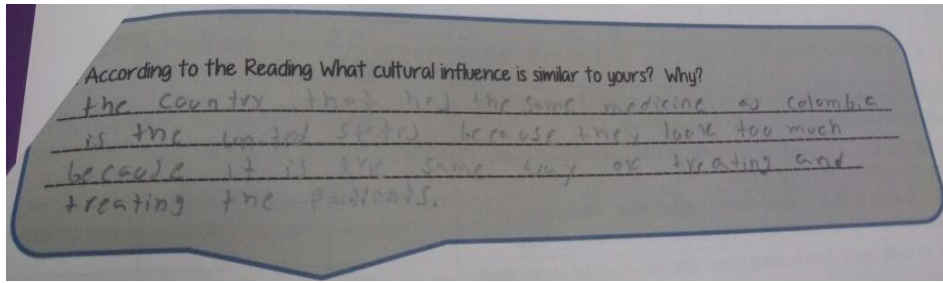 According to the Reading What cultural influence is similar to yours? Why?
the country that has the same medicine as Colombia
is the united states because they look too much
because it is the same way of treating and
treating the patients.